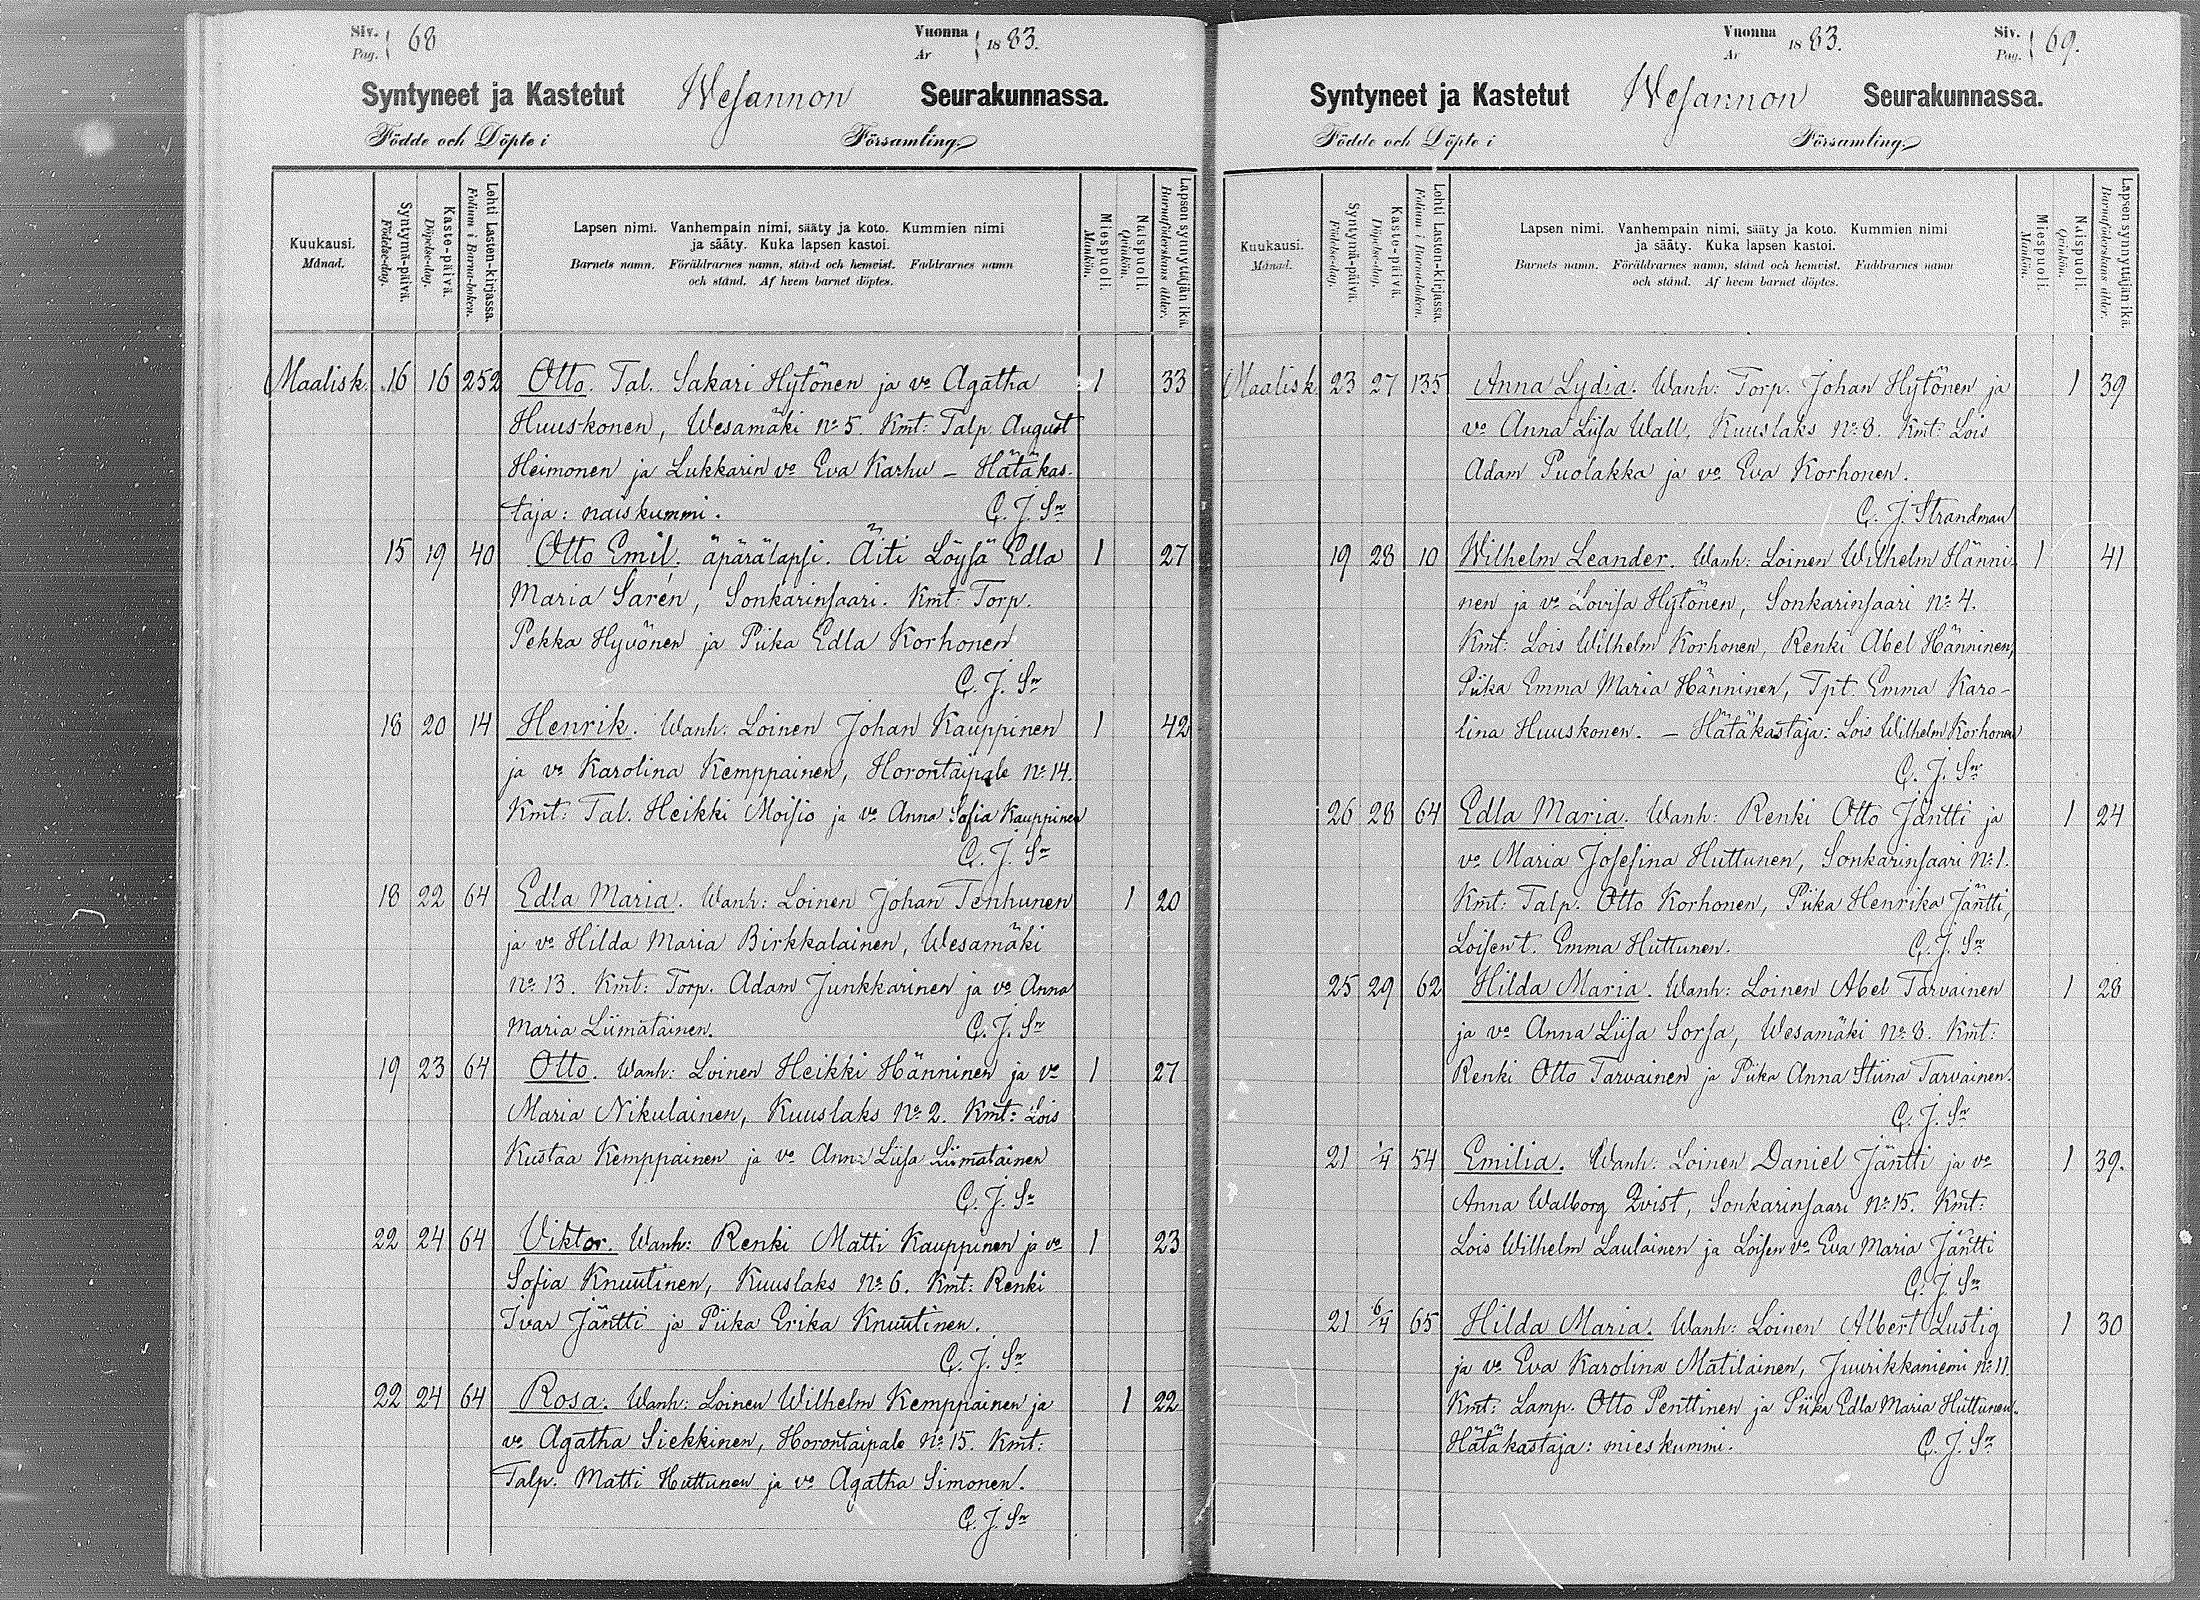 Siv. Pag. 68
Vuonna Ar 1883.
Syntyneet ja Kastetut Wesannon Seurakunnassa.
Födde och Döpte i Församling.
Kuukausi. Månad.
Syntymä-päivä. Födelse-dag.
Kaste-päivä. Döpelse-dag.
Lehti Lasten-kirjassa. Folium i Barna-boken.
Lapsen nimi. Vanhempain nimi, sääty ja koto. Kummien nimi
ja sääty. Kuka lapsen kastoi.
Barnets namn. Föräldrarnes namn, stånd och hemvist. Faddrarnes namn
och stånd. Af hvem barnet döptes.
Miespuoli. Mankön.
Naispuoli. Qvinkön.
Lapsen synnyttäjän ikä. Barnaföderskans ålder.
Maalisk. 16 16 252 Otto. Tal. Sakari Hytönen ja vo Agatha 1 33
Huuskonen, Wesamäki No 5. Kmt: Talp. August
Heimonen ja Lukkarin vo Eva Karhu – Hätäkas-
taja: naiskummi. C. J. Sn
15 19 40 Otto Emil. äpärälapsi. Äiti Löysä Edla 1 27
Maria Sarén, Sonkarinsaari. Kmt: Torp.
Pekka Hyvönen ja Piika Edla Korhonen
C. J. Sn
18 20 14 Henrik. Wanh: Loinen Johan Kauppinen 1 42
ja vo Karolina Kemppainen, Horontaipale No 14.
Kmt: Tal. Heikki Moisio ja vo Anna Sofia Kauppinen
C. J. Sn
18 22 64 Edla Maria. Wanh: Loinen Johan Tenhunen 1 20
ja vo Hilda Maria Birkkalainen, Wesamäki
No 13. Kmt: Torp. Adam Junkkarinen ja vo Anna
Maria Liimatainen. C. J. Sn
19 23 64 Otto. Wanh: Loinen Heikki Hänninen ja vo 1 27
Maria Nikulainen, Kuuslaks No 2. Kmt: Lois
Kustaa Kemppainen ja vo Anna Liisa Liimatainen
C. J. Sn
22 24 64 Viktor. Wanh: Renki Matti Kauppinen ja vo 1 23
Sofia Knuutinen, Kuuslaks No 6. Kmt: Renki
Ivar Jäntti ja Piika Erika Knuutinen.
C. J. Sn
22 24 64 Rosa. Wanh: Loinen Wilhelm Kemppainen ja 1 22
vo Agatha Siekkinen, Horontaipale No 15. Kmt:
Talp. Matti Huttunen ja vo Agatha Simonen.
C. J. Sn
Vuonna Ar 1883.
Siv. Pag. 69.
Syntyneet ja Kastetut Wesannon Seurakunnassa.
Födde och Döpte i Församling.
Kuukausi. Månad.
Syntymä-päivä. Födelse-dag.
Kaste-päivä. Döpelse-dag.
Lehti Lasten-kirjassa. Folium i Barna-boken.
Lapsen nimi. Vanhempain nimi, sääty ja koto. Kummien nimi
ja sääty. Kuka lapsen kastoi.
Barnets namn. Föräldrarnes namn, stånd och hemvist. Faddrarnes namn
och stånd. Af hvem barnet döptes.
Miespuoli. Mankön.
Naispuoli. Qvinkön.
Lapsen synnyttäjän ikä. Barnaföderskans ålder.
Maalisk. 23 27 135 Anna Lydia. Wanh: Torp. Johan Hytönen ja 1 39
vo Anna Liisa Wall, Kuuslaks No 8. Kmt: Lois
Adam Puolakka ja vo Eva Korhonen.
C. J. Strandman
19 28 10 Wilhelm Leander. Wanh: Loinen Wilhelm Hänni- 1 41
nen ja vo Lovisa Hytönen, Sonkarinsaari No 4.
Kmt: Lois Wilhelm Korhonen, Renki Abel Hänninen,
Piika Emma Maria Hänninen, Tpt. Emma Karo-
lina Huuskonen. – Hätäkastaja: Lois Wilhelm Korhonen
C. J. Sn
26 28 64 Edla Maria. Wanh: Renki Otto Jäntti ja 1 24
vo Maria Josefina Huttunen, Sonkarinsaari No 1.
Kmt: Talp. Otto Korhonen, Piika Henrika Jäntti,
Loisen t. Emma Huttunen. C. J. Sn
25 29 62 Hilda Maria. Wanh: Loinen Abel Tarvainen 1 28
ja vo Anna Liisa Sorsa, Wesamäki No 8. Kmt:
Renki Otto Tarvainen ja Piika Anna Stiina Tarvainen.
C. J. Sn
21 1/4 54 Emilia. Wanh: Loinen Daniel Jäntti ja vo 1 39.
Anna Walborg Qvist, Sonkarinsaari No 15. Kmt:
Lois Wilhelm Laulainen ja Loisen vo Eva Maria Jäntti
C. J. Sn
21 6/4 65 Hilda Maria. Wanh: Loinen Albert Lustig 1 30
ja vo Eva Karolina Matilainen, Juurikkaniemi No 11.
Kmt: Lamp. Otto Penttinen ja Piika Edla Maria Huttunen.
Hätäkastaja: mieskummi. C. J. Sn